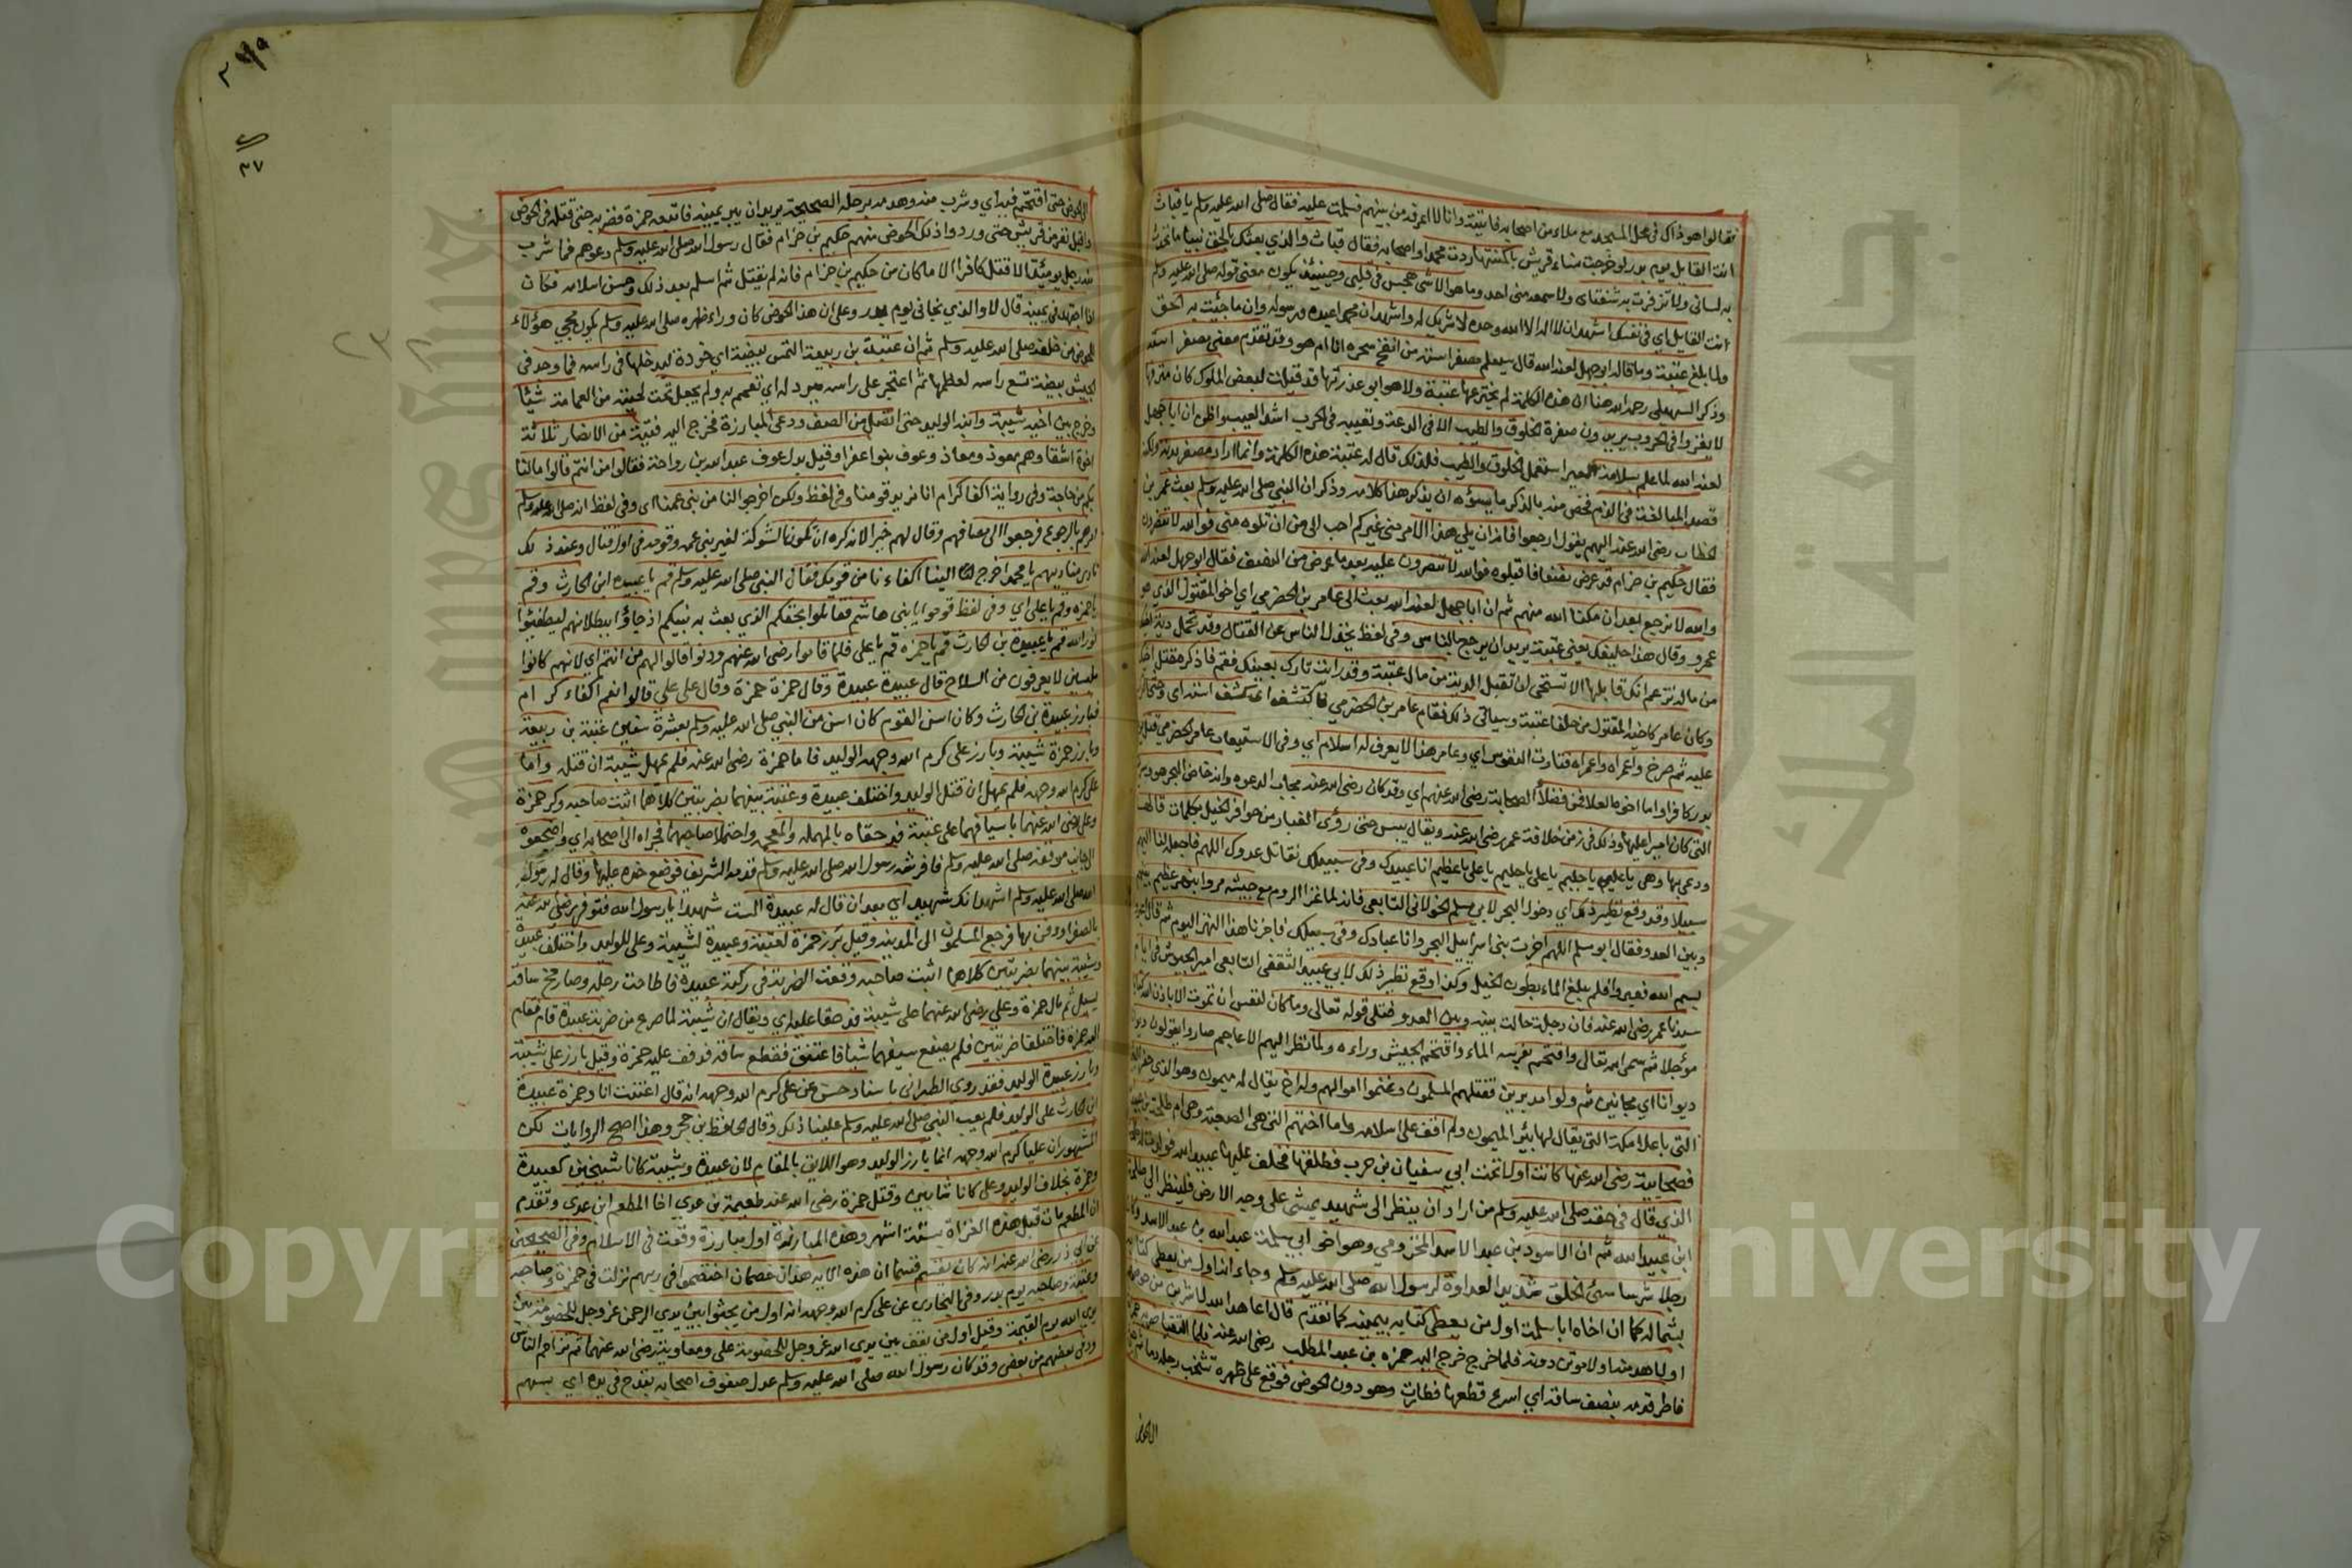 فقالوا هو ذاك في ظل المسجد مع ملاء من اصحابه فاتيته وانا لا اعرفه من بينهم فسلمت عليه فقال صلى الله عليه وسلم يا قباث
انت القايل يوم بدر لو خرجت نساء قريش باكمتها ردت محمدا واصحابه فقال قباث والذي بعثك بالحق نبيا ما تحدث
به لساني ولا تزفزفت به شفتاى ولا سمعه منى احد وما هو الا شى هجس في قلبي وحينئذ يكون معنى قوله صلى الله عليه وسلم
انت القايل اي في نفسك اشهد ان لا اله الا الله وحده لا شريك له واشهد ان محمدا عبده ورسوله وان ما جئت به الحق
ولما بلغ عتبة ما قاله ابو جهل لعنه الله قال سيعلم مصفر استه من انفخ سحره انا ام هو وقد تقدم معنى مصفر استه
وذكر السهيلي رحمه الله هنا ان هذه الكلمة لم يخترعها عتبة ولا هو ابو عذرتها قد قيلت لبعض الملوك كان مترفها
لا يغزوا في الحروب يريدون صفرة الخلوق والطيب الا في الدعة وتعيبه في الحرب اشد العيب واظن ان ابا جهل
لعنه الله لما علم بسلامة العير استعمل الخلوق والطيب فلذلك قال له عتبة هذه الكلمة وانما اراد مصفر بدنه ولكنه
قصد المبالغة في الذم فخص منه بالذكر ما يسؤه ان يذكر هذا كلامه وذكر ان النبي صلى الله عليه وسلم بعث عمر بن
الخطاب رضى الله عنه اليهم يقول ارجعوا فانه ان يلي هذا الامر منى غيركم احب الى من ان تلوه منى فوالله لا تنصرون
فقال حكيم بن حزام قد عرض نصفا فاقبلوه فوالله لا تنصرون عليه بعد ما عرض من النصف فقال ابو جهل لعنه الله
والله لا نرجع بعد ان مكننا الله منهم ثم ان ابا جهل لعنه الله بعث الى عامر بن الحضرمي اي اخو المقتول الذي هو
عمرو وقال هذا حليفك يعنى عتبة يريد ان يرجع بالناس وفي لفظ يخذل الناس عن القتال وقد تحمل دية اخيك
من ماله تزعم انك قابلها الا تستحى ان تقبل الدية من مال عتبة وقد رايت ثارك بعينك فقم فاذكر مقتل اخيك
وكان عامر كاخيه المقتول من حلفا عتبة وسياتى ذلك فقام عامر بن الحضرمي فاكتشف اى كشف استه اى وحثا
عليه ثم صرخ واعمراه واعمراه فثارت النفوس اي وعامر هذا لا يعرف له اسلام اي وفي الاستيعاب عامر الحضرمي قتل يوم
بدر كافرا واما اخوهما العلا فمن فضلا الصحابة رضى الله عنهم اي وقد كان رضى الله عنه مجاب الدعوه وانه خاض البحر هو وسريته
التي كان اميرا عليها وذلك في زمن خلافة عمر رضى الله عنه ويقال يبس حتى رؤى الغبار من حوافر الخيل بكلمات قالها
ودعى بها وهى يا عليم يا حليم يا على يا عظيم انا عبيدك وفي سبيلك نقاتل عدوك اللهم فاجعل لنا اليهم
سبيلا وقد وقع نظير ذلك اي دخول البحر لابي مسلم الخولاني التابعي فانه لما غزا الروم مع جيشه مروا بنهر عظيم بينهم
وبين العدو فقال ابو مسلم اللهم اجزت بنى اسراييل البحر وانا عبادك وفي سبيلك فاجزنا هذا النهر اليوم ثم قال اعبروا
بسم الله فعبروا فلم يبلغ الماء بطون الخيل وكذا وقع نظير ذلك لابي عبيد الثقفي التابعي امير الجيوش في ايام
سيدنا عمر رضى الله عنه فان دجلة حالت بينه وبين العدو فتلى قوله تعالى وما كان لنفس ان تموت الا باذن الله كتابا
مؤجلا ثم سمى الله تعالى واقتحم بفرسه الماء واقتحم الجيش وراءه ولما نظر اليهم الاعاجم صاروا يقولون ديوانا
ديوانا اي مجانين ثم ولوا مدبرين فقتلهم المسلمون وغنموا اموالهم وله اخ يقال له ميمون وهو الذي حفر البئر
التي باعلا مكة التي يقال لها بئر الميمون ولم اقف على اسلامه واما اختهم التي هي الصعبة وهي ام طلحة بن عبيد
فصحابية رضى الله عنها كانت اولا تحت ابي سفيان بن حرب فطلقها فخلف عليها عبيد الله فولدت له طلحة
الذي قال في حقه صلى الله عليه وسلم من اراد ان ينظر الى شهيد يمشى على وجه الارض فلينظر الى طلحة
ابن عبيد الله ثم ان الاسود بن عبد الاسد المخزومي وهو اخو ابي سلمة عبد الله بن عبد الاسد وكان
رجلا شرسا سئ الخلق شديد العداوة لرسول الله صلى الله عليه وسلم وجاء انه اول من يعطى كتابه
بشماله كما ان اخاه ابا سلمة اول من يعطى كتابه بيمينه كما تقدم قال اعاهد الله لاشربن من حوضهم
او لاهدمنه او لاموتن دونه فلما خرج خرج اليه حمزه بن عبد المطلب رضى الله عنه فلما التقيا ضربه حمزة
فاطن قدمه بنصف ساقه اي اسرع قطعها فطارت وهو دون الحوض فوقع على ظهره تشخب رجله دما ثم حبا
الى الحوض
الى الحوض حتى اقتحم فيه اي وشرب منه وهدمه برجله الصحيحة يريد ان يبر يمينه فاتبعه حمزة فضربه حتى قتله في الحوض
واقبل نفر من قريش حتى وردوا ذلك الحوض منهم حكيم بن حزام فقال رسول الله صلى الله عليه وسلم دعوهم فما شرب
منه رجل يومئذ الا قتل كافرا الا ما كان من حكيم بن حزام فانه لم يقتل ثم اسلم بعد ذلك وحسن اسلامه فكان
اذا اجتهد في يمينه قال لا والذي نجاني يوم بدر وعلى ان هذا الحوض كان وراء ظهره صلى الله عليه وسلم يكون مجئ هؤلاء
للحوض من خلفه صلى الله عليه وسلم ثم ان عتبة بن ربيعة التمس بيضة اي خودة ليدخلها في راسه فما وجد في
الجيش بيضة تسع راسه لعظمها ثم اعتجر على راسه ببرد له اي تعمم به ولم يجعل تحت لحيته من العمامة شيئا
وخرج بين اخيه شيبة وابنه الوليد حتى انفصل من الصف ودعى للمبارزة فخرج اليه فتية من الانصار ثلاثة
اخوة اشقا وهم معوذ ومعاذ وعوف بنوا عفرا وقيل بدل عوف عبد الله بن رواحة فقالوا من انتم قالوا مالنا
بكم من حاجة وفي رواية اكفا كرام انا نريد قومنا وفي لفظ ولكن اخرجوا النا من بنى عمنا اى وفي لفظ انه صلى الله عليه وسلم
امرهم بالرجوع فرجعوا الى مصافهم وقال لهم خيرا لانه كره ان تكون الشوكة لغير بنى عمه وقومه في اول قتال وعند ذلك
نادى مناديهم يا محمد اخرج الينا اكفاءنا من قومك فقال النبي صلى الله عليه وسلم قم يا عبيده ابن الحارث وقم
يا حمزه وقم يا على اي وفي لفظ قوموا يا بنى هاشم فقاتلوا بحقكم الذي بعث به نبيكم اذ جاؤا ببطلانهم ليطفئوا
نور الله قم يا عبيدة بن الحارث قم يا حمزه قم يا على فلما قاموا رضى الله عنهم ودنوا قالوا لهم من انتم اي لانهم كانوا
ملبسين لا يعرفون من السلاح قال عبيدة عبيدة وقال حمزة حمزة وقال على على قالوا نعم اكفاء كرام
فبارز عبيدة بن الحارث وكان اسن القوم كان اسن من النبي صلى الله عليه وسلم بعشرة سنين عتبة بن ربيعة
وبارز حمزة شيبة وبارز على كرم الله وجهه الوليد فاما حمزة رضى الله عنه فلم يمهل شيبة ان قتله واما
على كرم الله وجهه فلم يمهل ان قتل الوليد واختلف عبيدة وعتبة بينهما بضربتين كلاهما اثبت صاحبه وكر حمزة
وعلى رضى الله عنهما باسيافهما على عتبة فدحقاه بالمهمله والمعجمه واحتملا صاحبهما فجراه الى اصحابه اي واضجعوه
الى جانب موقفه صلى الله عليه وسلم فافرشه رسول الله صلى الله عليه وسلم قدمه الشريف فوضع خده عليها وقال له رسول
الله صلى الله عليه وسلم اشهد انك شهيد اي بعد ان قال له عبيدة الست شهيدا يا رسول الله فتوفى رضى الله عنه
بالصفرا ودفن بها فرجع المسلمون الى المدينه وقيل برز حمزة لعتبة وعبيدة لشيبة وعلى للوليد واختلف عبيدة
وشيبة بينهما بضربتين كلاهما اثبت صاحبه وقعت الضربة في ركبة عبيدة فاطاحت رجله وصار مخ ساقه
يسيل ثم مال حمزة وعلى رضى الله عنهما على شيبة فدحقا عليه اي ويقال ان شيبة لما صرع من ضربة عبيدة قام فقام
اليه حمزة فاختلفا ضربتين فلم يصنع سيفهما شيا فاعتنق فقطع ساقه فدفف عليه حمزة وقيل بارز على شيبة
وبارز عبيدة الوليد فقد روى الطبرانى باسناد حسن عن على كرم الله وجهه انه قال اعنت انا وحمزة عبيدة
ابن الحارث على الوليد فلم يعب النبي صلى الله عليه وسلم علينا ذلك وقال الحافظ بن حجر وهذا اصح الروايات لكن
المشهور ان عليا كرم الله وجهه انما بارز الوليد وهو اللايق بالمقام لان عبيدة وشيبة كانا شيخين كعبيدة
وحمزة بخلاف الوليد وعلى كانا شابين وقتل حمزة رضى الله عنه طعيمة بن عدي اخا المطعم ابن عدى وتقدم
ان المطعم مات قبل هذه الغزاة بستة اشهر وهذه المبارزة اول مبارزة وقعت في الاسلام وفي الصحيحين
عن ابي ذر رضى الله عنه انه كان يقسم قسما ان هذه الايه هذان خصمان اختصموا في ربهم نزلت في حمزة وصاحبه
وعتبة وصاحبه يوم بدر وفي البخاري عن على كرم الله وجهه انه اول من يجثوا بين يدى الرحمن عز وجل للخصومة بين
يدى الله يوم القيمة وقيل اول من يقف بين يدى الله عز وجل للخصومة على ومعاوية رضى الله عنهما ثم تزاحم الناس
ودنى بعضهم من بعض وقد كان رسول الله صلى الله عليه وسلم عدل صفوف اصحابه بقدح في يده اي بسهم
٣٧
Copyright © King Saud University
جامعة الملك سعود